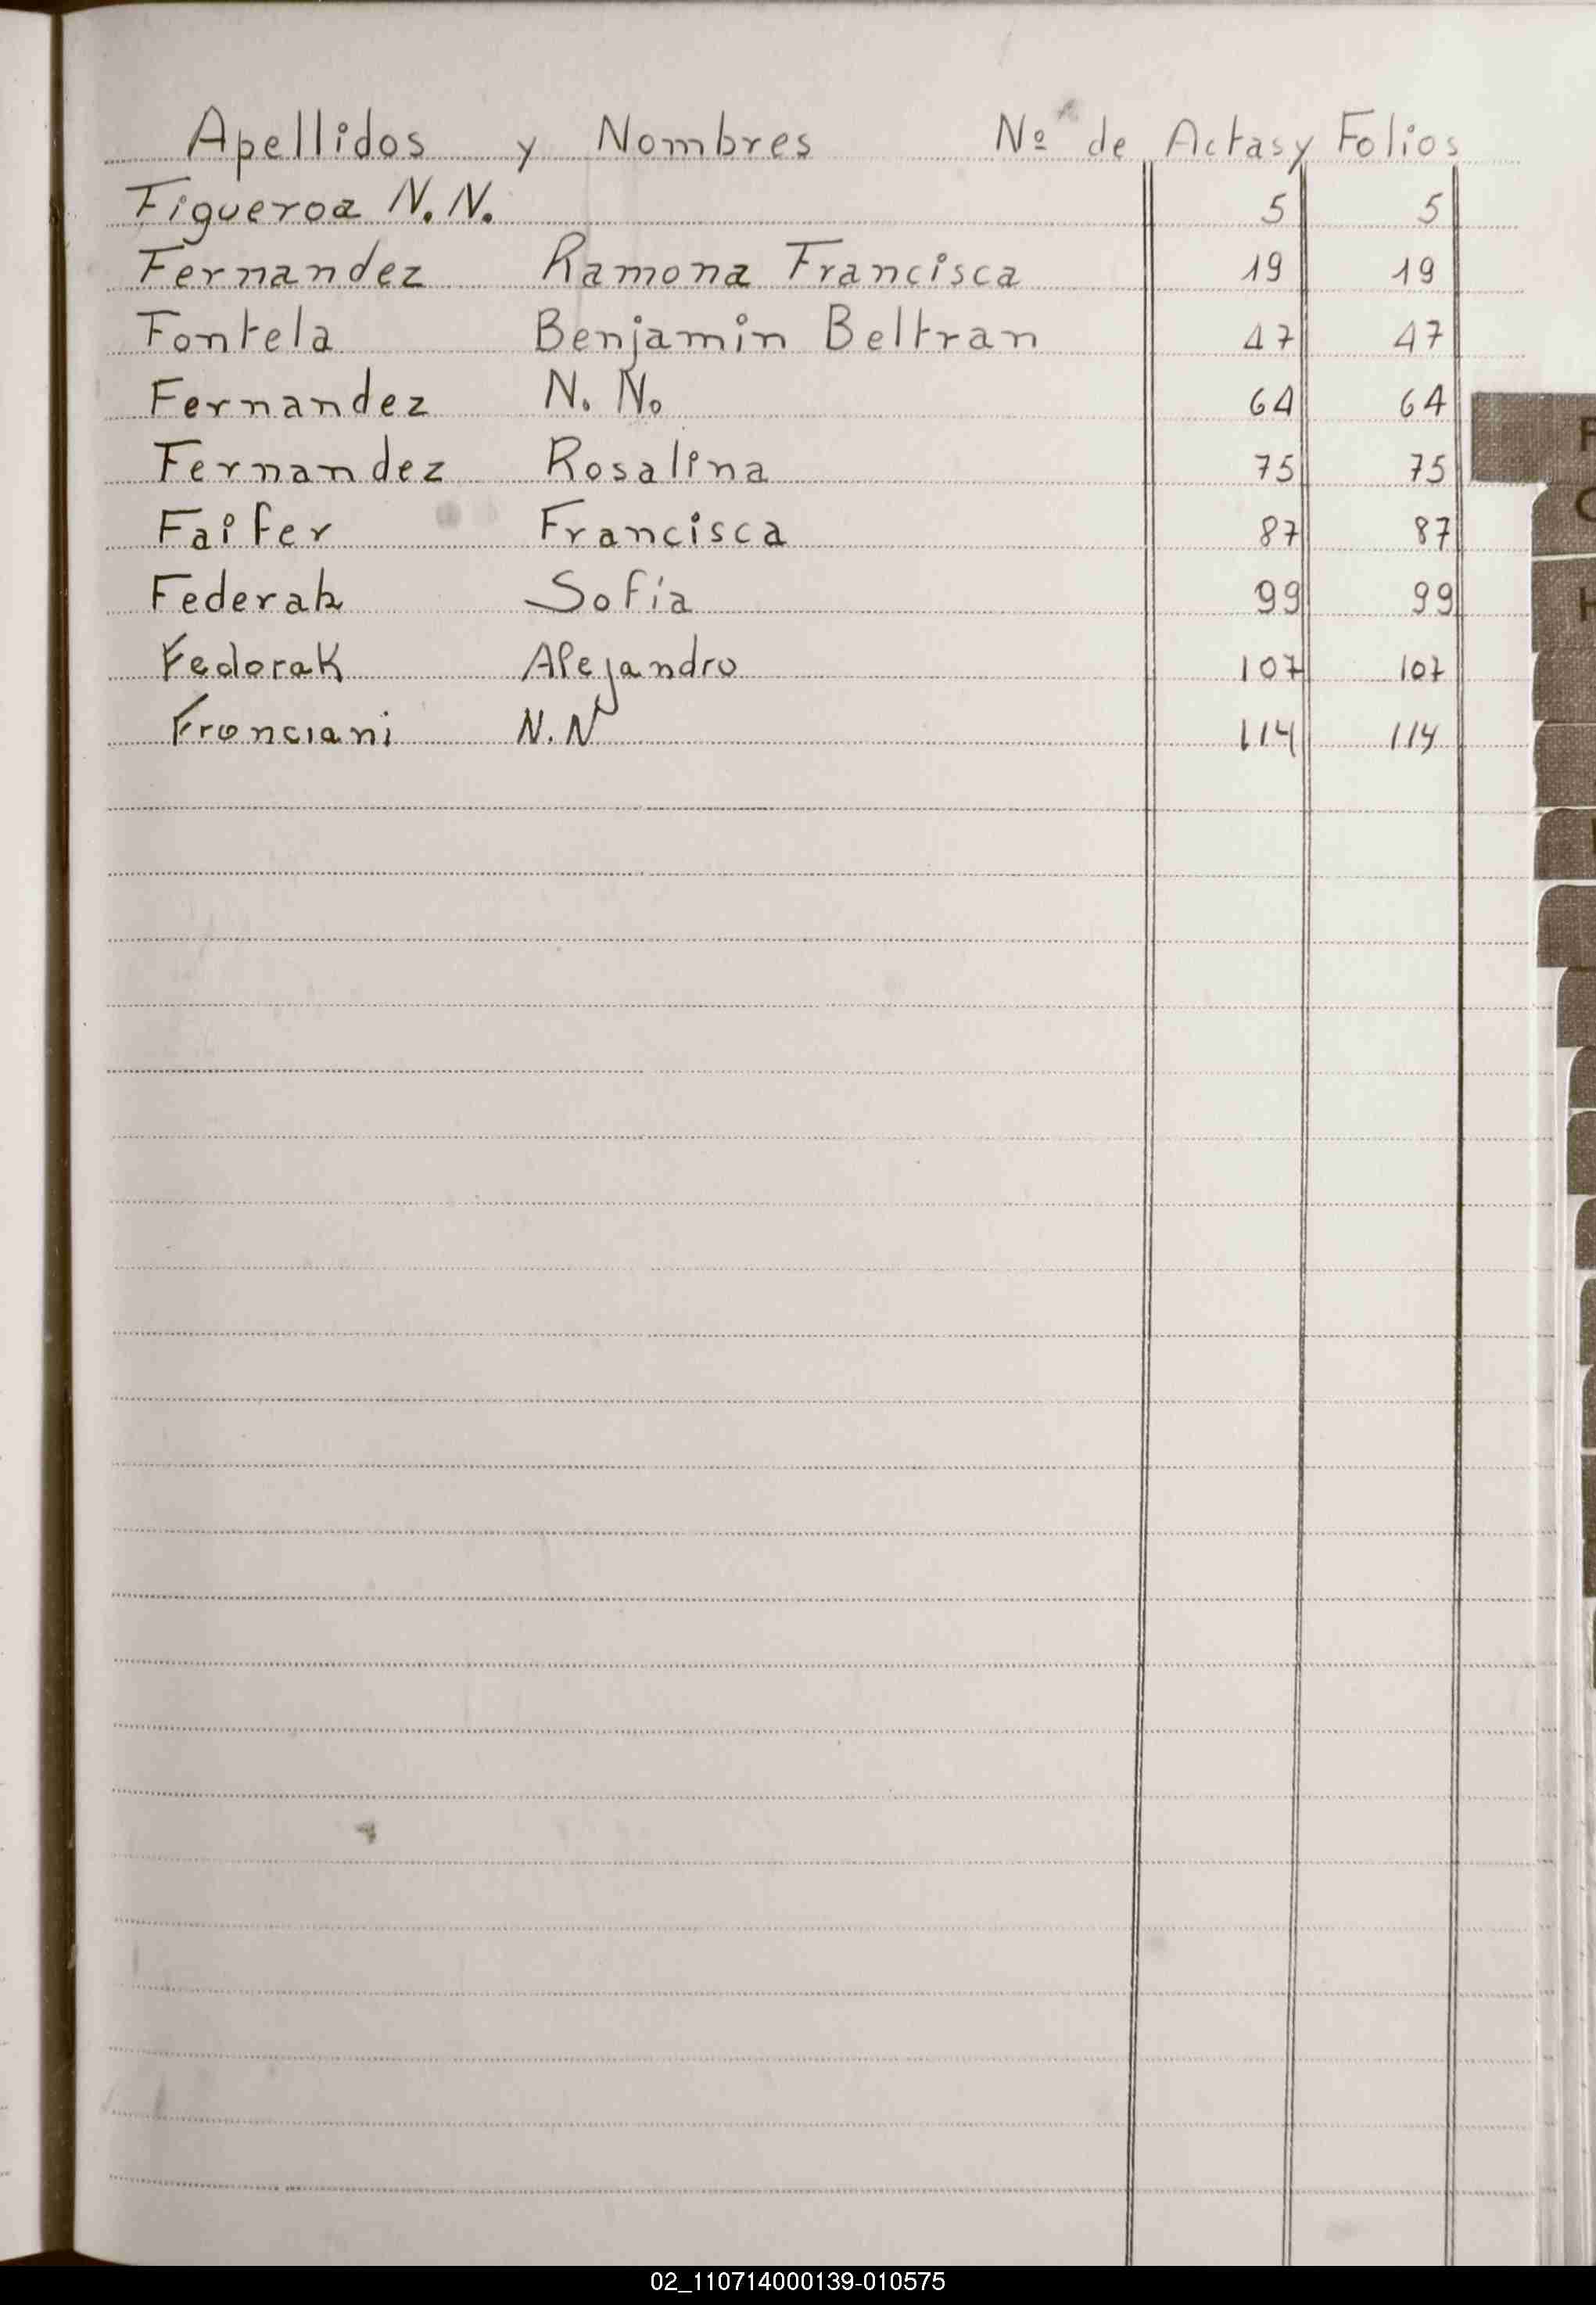 Apellidos y Nombres Nº de Actas y Folios
Figueroa N. N. 5 5
Fernandez Ramona Francisca 19 19
Fontela Benjamin Beltran 47 47
Fernandez N. N. 64 64
Fernandez Rosalina 75 75
Faifer Francisca 87 87
Federak Sofía 99 99
Fedorak Alejandro 107 107
Fronciani N. N 114 114
F
H
02_110714000139-010575